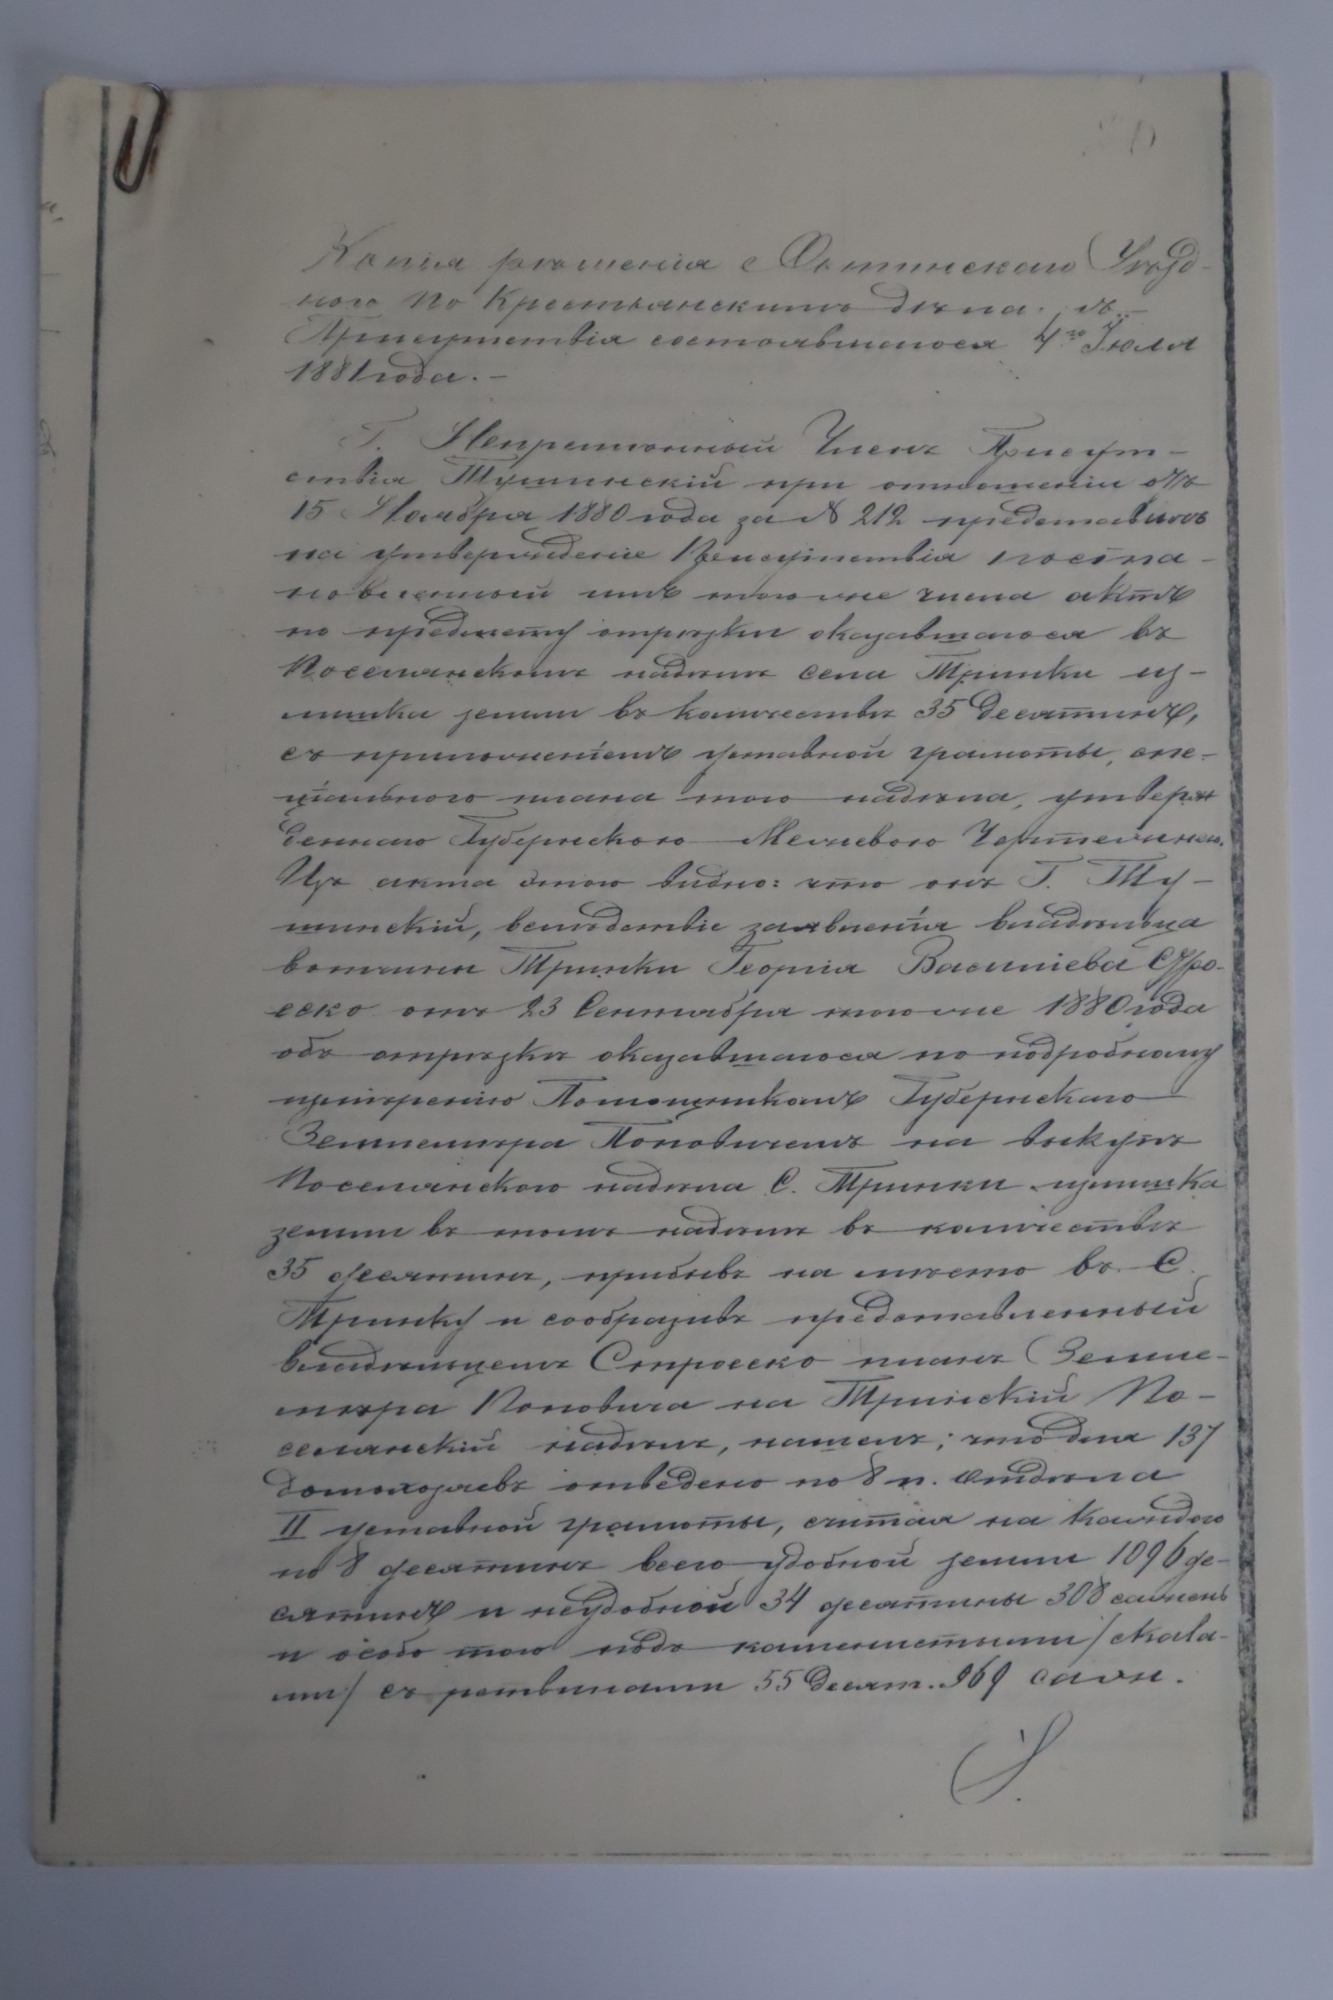 Копія рѣшенія Хотинскаго Уѣзд-
наго по Крестьянскимъ дѣламъ
Присутствія состоявшагося 4го Іюля
1881 года. –
Г. Непремѣнный Членъ Присут-
ствія Тушинскій при отношеніи отъ
15 Ноября 1880 года за № 212 представилъ
на утвержденіе Присутствія поста-
новленный имъ того же числа актъ
по предмету отрѣзки оказавшагося въ
Поселянскомъ надѣлѣ села Тринки из-
лишка земли въ количествѣ 35 десятинъ,
съ приложеніемъ уставной грамоты, спе-
ціальнаго плана того надѣла, утверж-
деннаго Губернскою Межевою Чертежною.
Изъ акта этого видно: что онъ Г. Ту-
шинскій, вслѣдствіе заявленія владѣльца
вотчины Тринки Георгія Васильева Стро-
еско отъ 23 Сентября того же 1880 года
объ отрѣзкѣ оказавшагося по подробному
измѣренію Помощникомъ Губернскаго
Землемѣра Поповичемъ на выкупъ
Поселянскаго надѣла С. Тринки излишка
земли въ томъ надѣлѣ въ количествѣ
35 десятинъ, прибывъ на мѣсто въ С.
Тринку и сообразивъ представленный
владѣльцемъ Строеско планъ Землe-
мѣра Поповича на Тринскій По-
селянскій надѣлъ, нашелъ; что для 137
домохозяевъ отведено по 8 п. отдѣла
II уставной грамоты, считая на каждаго
по 8 десятинъ всего удобной земли 1096 де-
сятинъ и неудобной 34 десятины 308 сажень
и особо того подъ каменистыми /скала-
ми/ съ рытвинами 55 десят. 969 саж.